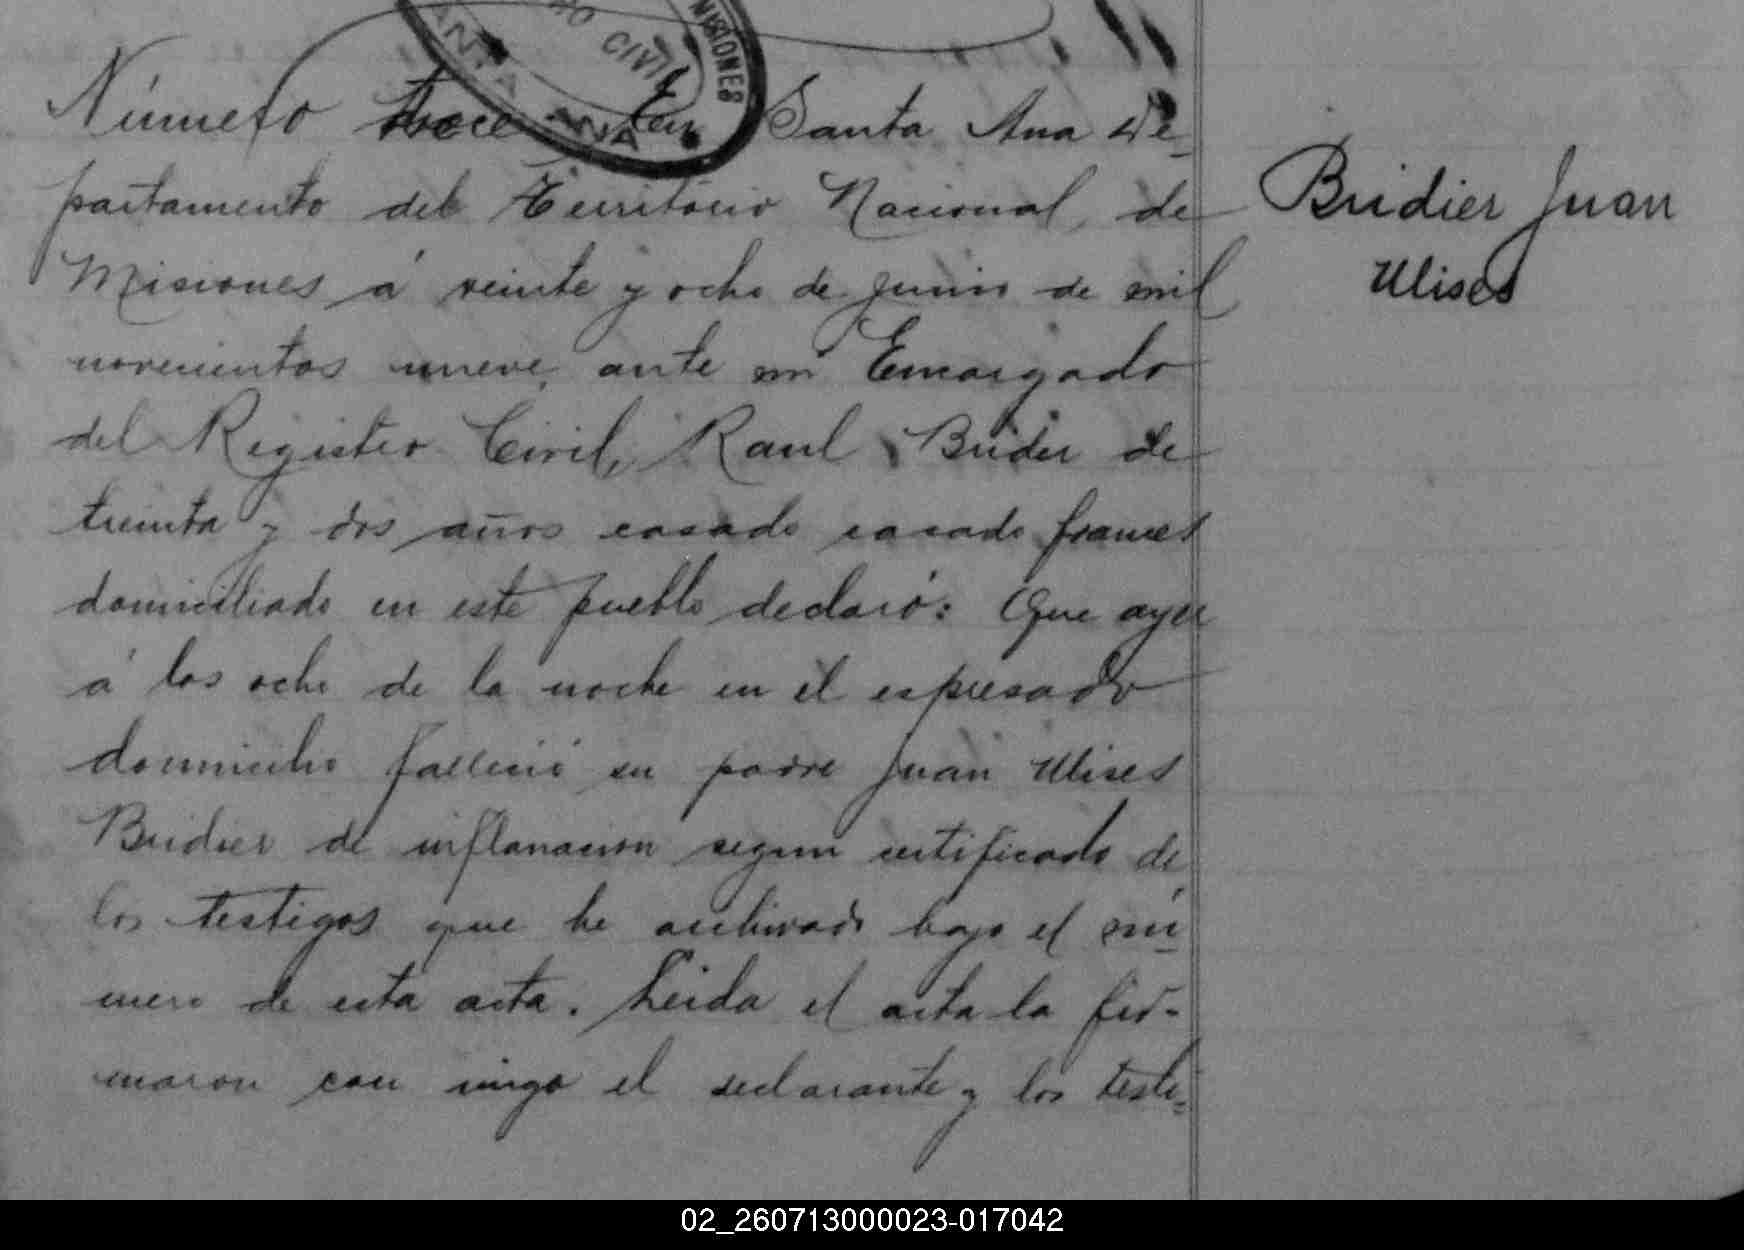 RO CIVIL
MISIONES
SANTA ANA
Número trece En Santa Ana De-
partamento del Territorio Nacional de
Misiones á veinte y ocho de Junio de mil
novecientos nueve, ante mi Encargado
del Registro Civil, Raul Bridier de
treinta y dos años casado casado frances
domiciliado en este pueblo declaró: Que ayer
á las ocho de la noche en el espresado
domicilio falleció su padre Juan Ulises
Bridier de inflamacion segun certificado de
los testigos que he archivado bajo el nú-
mero de esta acta. Leida el acta la fir-
maron con migo el declarante y los testi-
Bridier Juan
Ulises
02_260713000023-017042